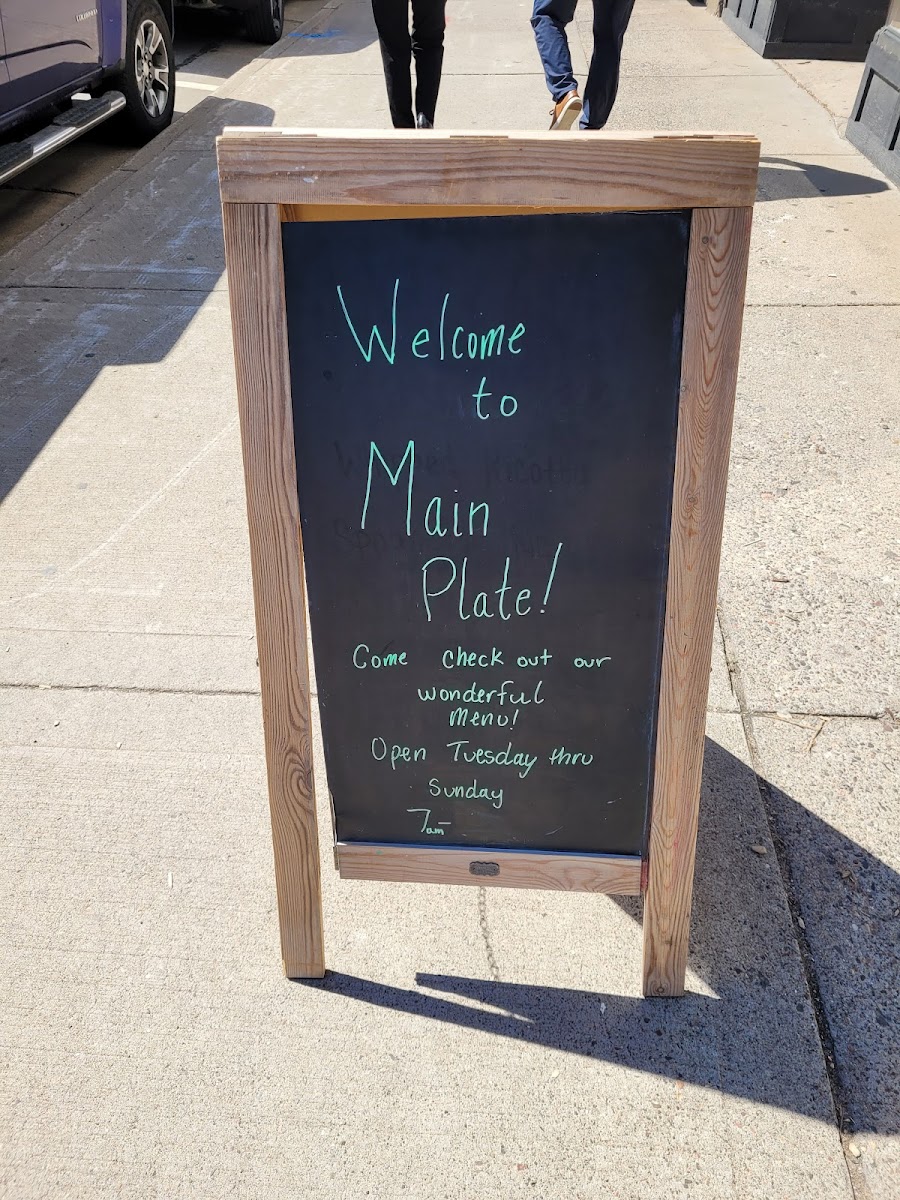 Welcome
to
Main
Plate!
Come check out our
wonderful
menu!
Open Tuesday thru
Sunday
7am-